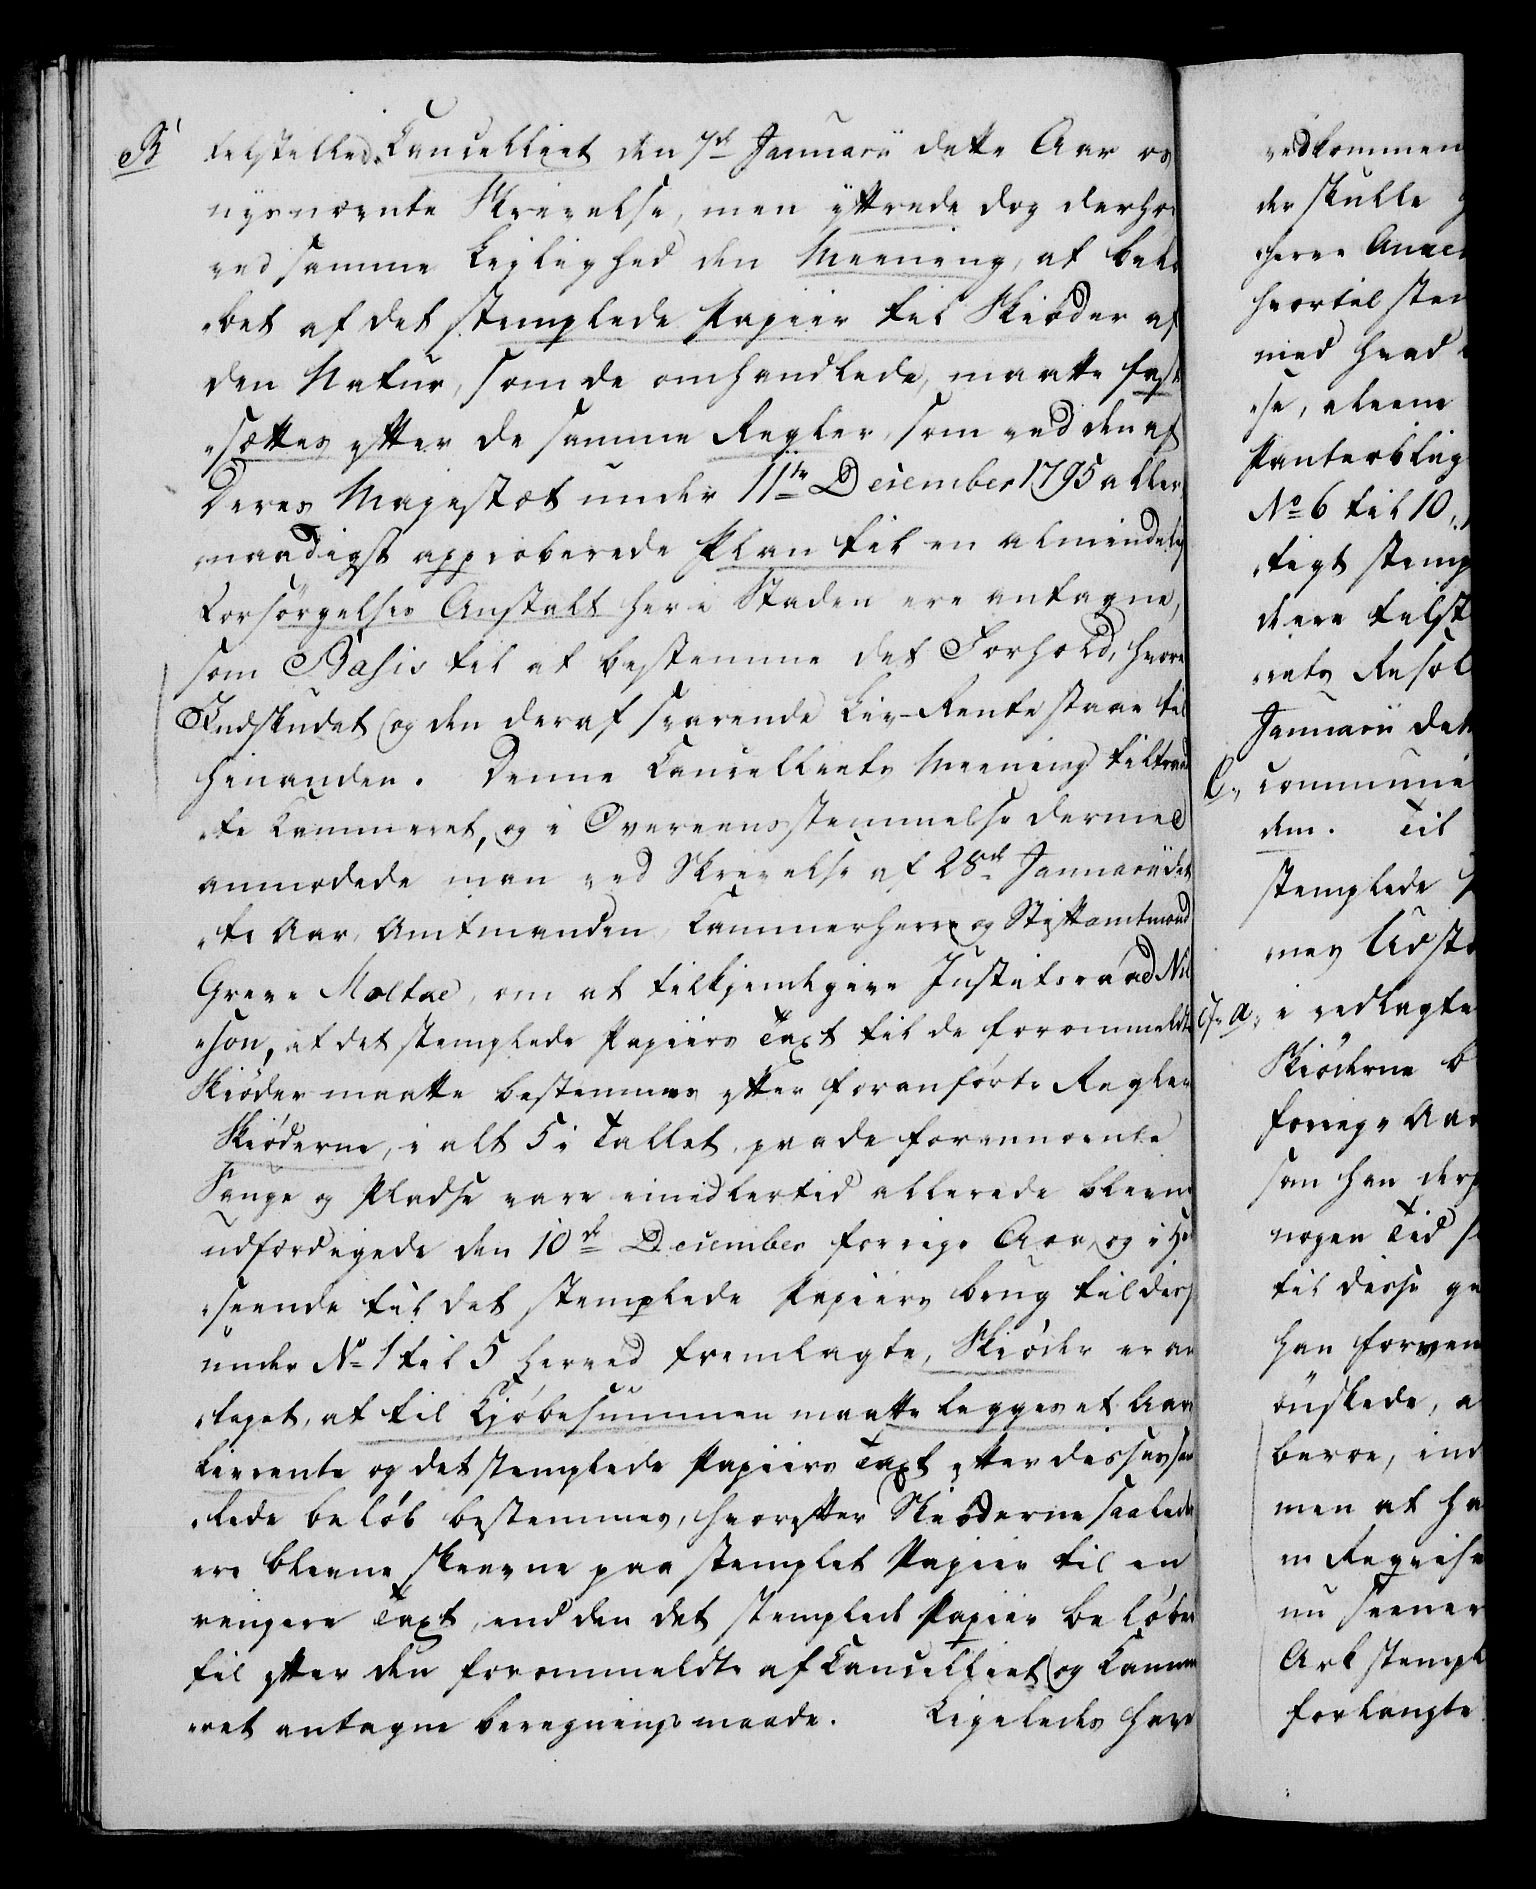 B
tilstilled Cancelliet den 7de Januarii dette Aar os
nysnævnte Skrivelse, men yttrede dog derho
ved samme Leilighed den Meening, at belø
„bet af det stemplede Papiir til Skiøder af
den Natur, som de omhandlede, maatte fast
„sættes efter de samme Regler, som ved den af
Deres Majestæt under 11te December 1795 aller
„naadigst approberede Plan til en almindelig
Forsörgelses Anstalt her i Staden ere antagne,
som Basis til at bestemme det Forhold, hvori
Indskudet og den deraf svarende Liv-Rente staae til
hinanden. Denne Cancelliets Meening tiltraad
„te Kammeret, og i Overeensstemmelse dermed
anmodede man ved Skrivelse af 28de Januarii det
„te Aar, Amtmanden, Kammerherre og Stiftamtmand
Greve Moltke, om at tilkjendegive Justitsraad Niel
„son, at det stemplede Papiirs Taxt til de forommeldte
Skiøder maatte bestemmes efter foranførte Regler
Skiøderne, i alt 5 i Tallet, paa de forennævnte
Vange og Pladse vare imidlertid allerede blevne
udfærdigede den 10de December forrige Aar, og i Hen
„seende til det stemplede Papiirs brug til disse
under No 1 til 5 herved fremlagte, Skiøder er an
„taget, at til Kjøbesummen maatte legges et Aars
Livrente og det stemplede Papiirs Taxt efter disses sam
„lede beløb bestemmes, hvorefter Skiøderne saaledes
ere blevne skrevne paa stemplet Papiir til en
ringere Taxt, end den det stemplede Papiir beløber
til efter den forommeldte af Cancelliet og Kamm
„eret antagne beregningsmaade. Ligeledes have
vedkommen
der skulle
„herre Anne
hvortil stem
med hvad
„se, aleene
Panterblig
No 6 til 10,
„tigt stemp
dere tilst
„rets Resol
Januarii det
C., commune
dem. Til
stemplede P
„nes Udste
cfr a, i vedlagte
Skiøderne b
forrige Aar
som han der
nogen Tid
til disse g
han forven
önskede, a
berre, ind
men at ha
en Reqvisi
nu seener
Ark stempl
forlangte